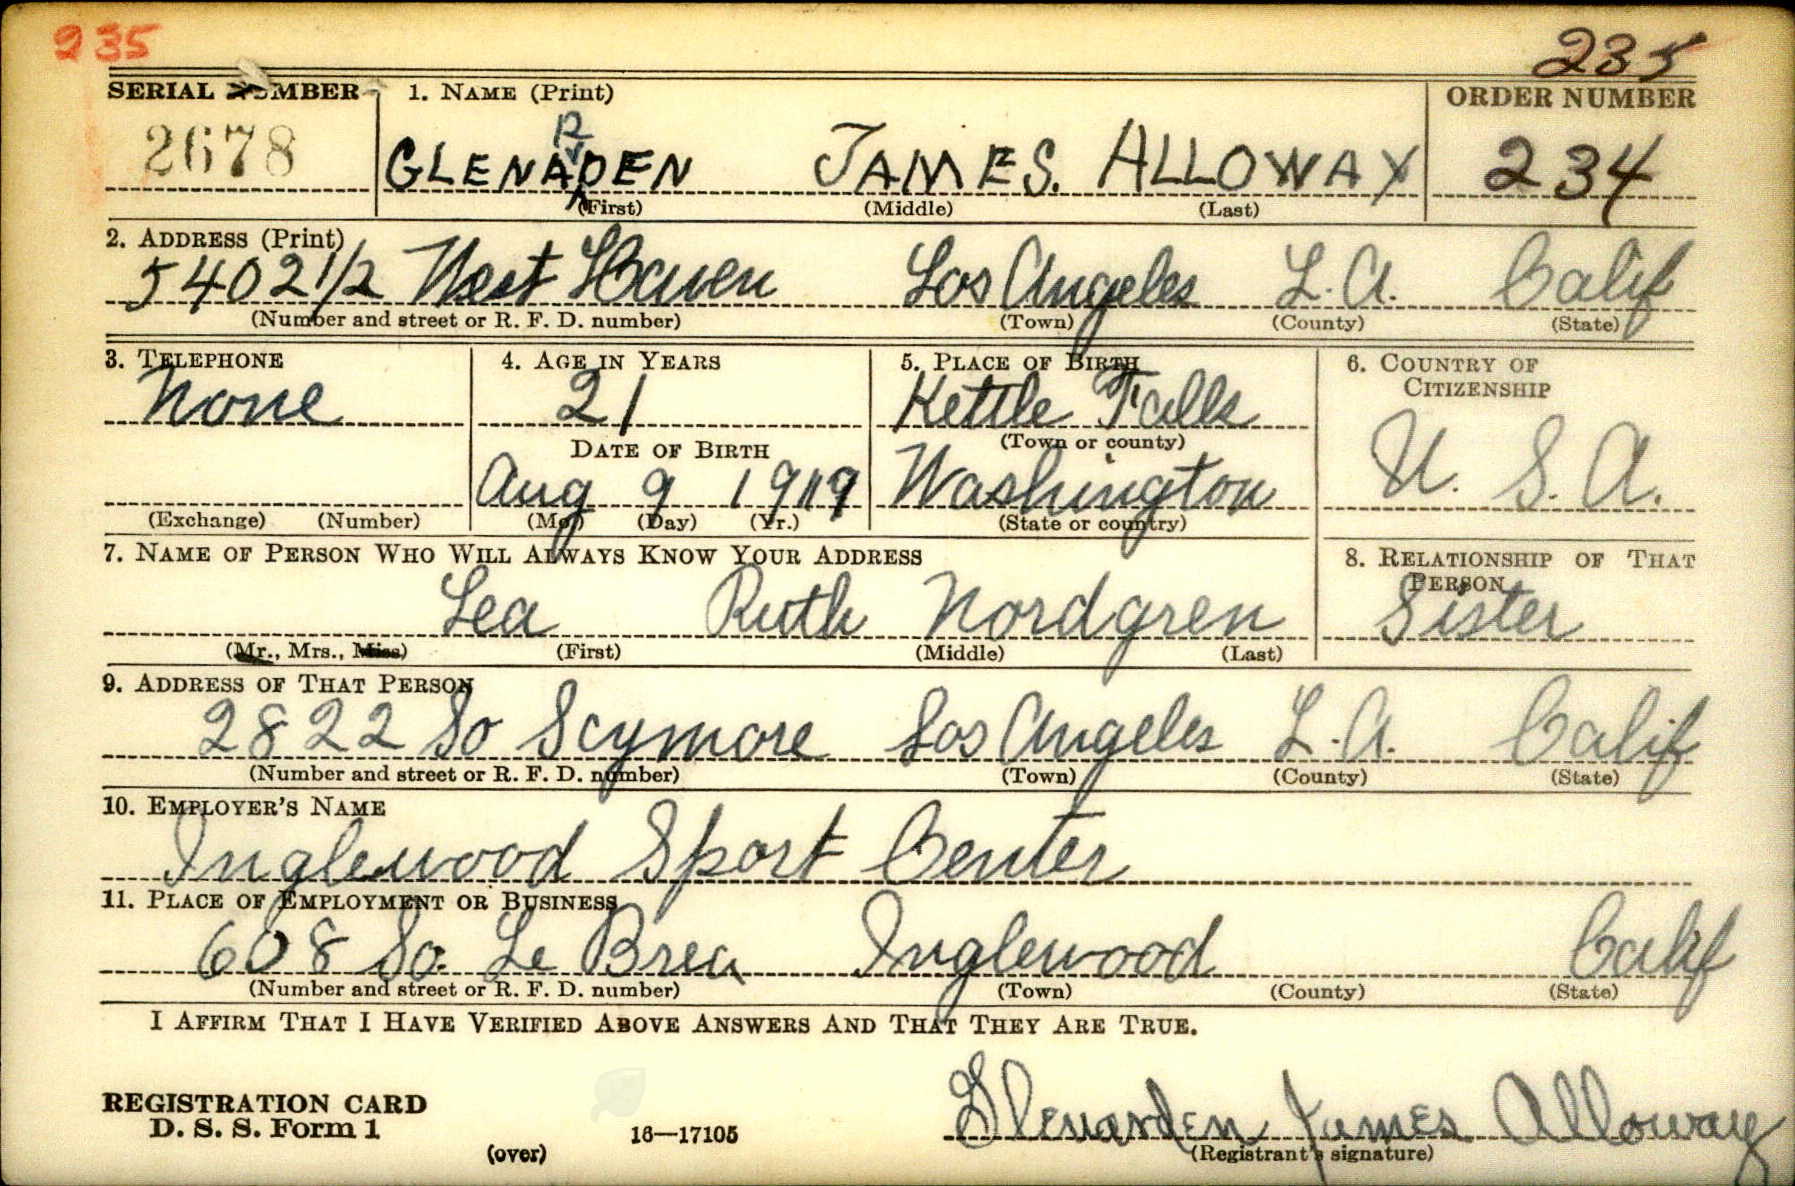 235
235
SERIAL NUMBER 1. NAME (Print) ORDER NUMBER
2678 GLENARDEN JAMES. ALLOWAY 234
(First) (Middle) (Last)
2. ADDRESS (Print)
5402 1/2 West Haven Los Angeles L.A. Calif
(Number and street or R. F. D. number) (Town) (County) (State)
3. TELEPHONE 4. AGE IN YEARS 5. PLACE OF BIRTH 6. COUNTRY OF CITIZENSHIP
None 21 Kettle Falls
(Town or county)
DATE OF BIRTH
Aug 9 1919 Washington U. S. A.
(Exchange) (Number) (Mo.) (Day) (Yr.) (State or country)
7. NAME OF PERSON WHO WILL ALWAYS KNOW YOUR ADDRESS 8. RELATIONSHIP OF THAT PERSON
Lea Ruth Nordgren Sister
(Mr., Mrs., Miss) (First) (Middle) (Last)
9. ADDRESS OF THAT PERSON
2822 So Scymore Los Angeles L.A. Calif
(Number and street or R. F. D. number) (Town) (County) (State)
10. EMPLOYER'S NAME
Inglewood Sport Center
11. PLACE OF EMPLOYMENT OR BUSINESS
608 So. Le Brea Inglewood Calif
(Number and street or R. F. D. number) (Town) (County) (State)
I AFFIRM THAT I HAVE VERIFIED ABOVE ANSWERS AND THAT THEY ARE TRUE.
REGISTRATION CARD
D. S. S. Form 1
(over) 16—17105
Glenarden James Alloway
(Registrant's signature)